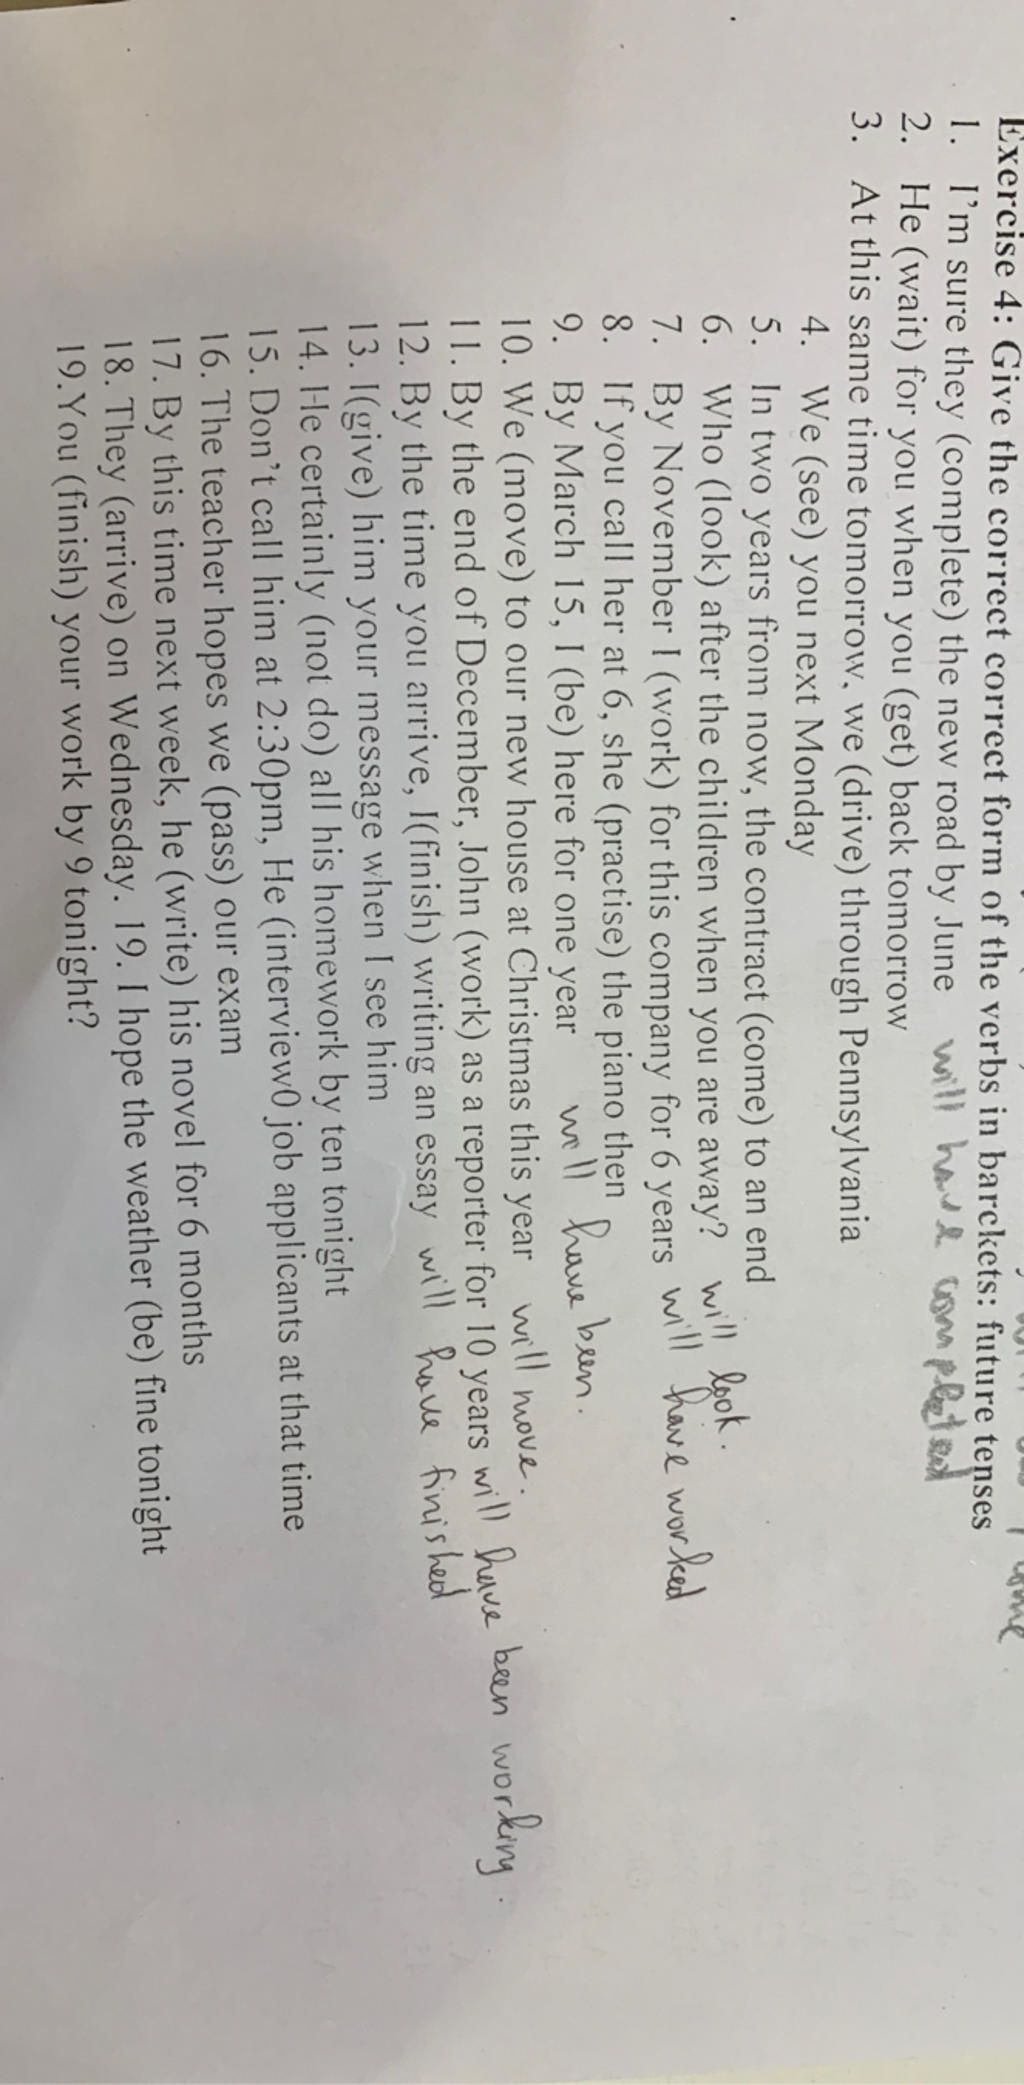 come
Exercise 4: Give the correct correct form of the verbs in barckets: future tenses
1. I'm sure they (complete) the new road by June will have completed
2. He (wait) for you when you (get) back tomorrow
3. At this same time tomorrow, we (drive) through Pennsylvania
4. We (see) you next Monday
5. In two years from now, the contract (come) to an end
6. Who (look) after the children when you are away? will look.
7. By November I (work) for this company for 6 years will have worked
8. If you call her at 6, she (practise) the piano then
9. By March 15, I (be) here for one year will have been.
10. We (move) to our new house at Christmas this year will move.
11. By the end of December, John (work) as a reporter for 10 years will have been working.
12. By the time you arrive, I(finish) writing an essay will have finished
13. I(give) him your message when I see him
14. He certainly (not do) all his homework by ten tonight
15. Don't call him at 2:30pm, He (interview0 job applicants at that time
16. The teacher hopes we (pass) our exam
17. By this time next week, he (write) his novel for 6 months
18. They (arrive) on Wednesday. 19. I hope the weather (be) fine tonight
19. You (finish) your work by 9 tonight?